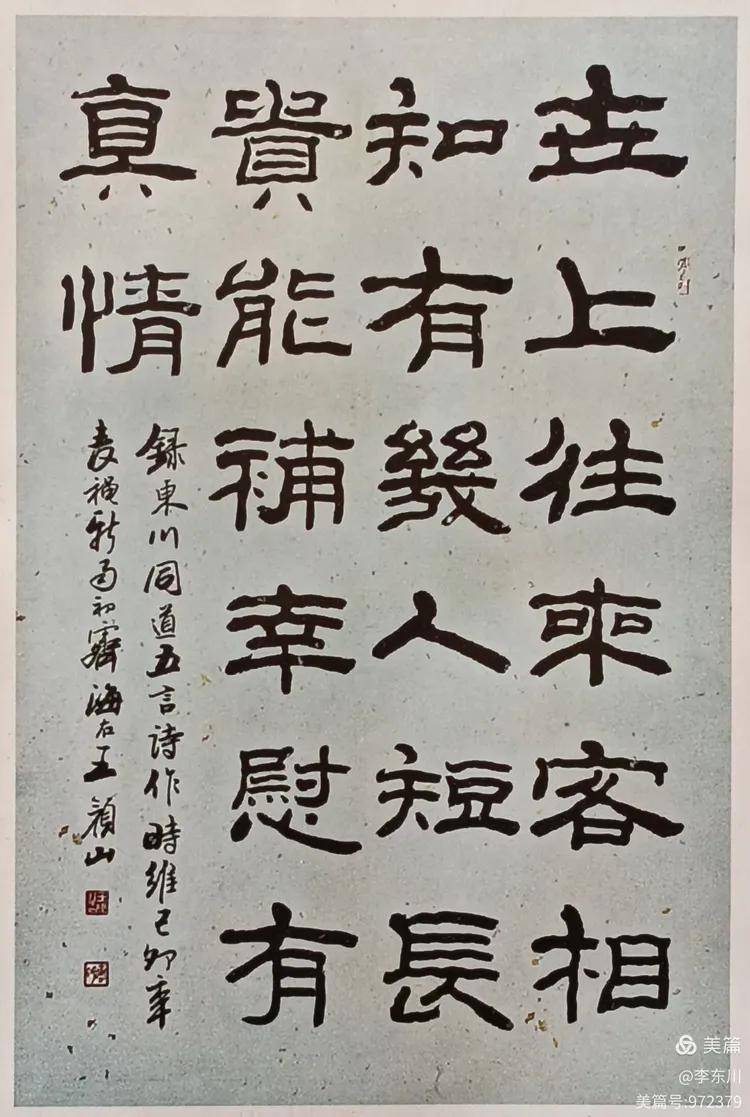 世上往来客相
知有幾人短長
貴能補幸慰有
真情
録東川同道五言詩作時維己卯年
春禊新雨初霽海右王顏山
美篇
@李东川
美篇号:972379